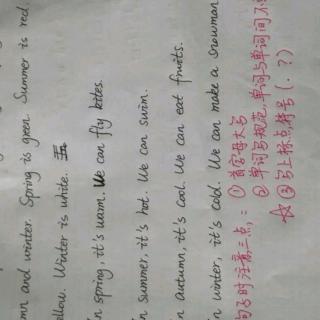 mn and winter. Spring is green. Summer is red.
llow. Winter is white.
n spring, it's warm. We can fly kites.
n summer, it's hot. We can swim.
n autumn, it's cool. We can eat fruits.
n winter, it's cold. We can make a snowman
句子时注意三点: ① 首字母大写
② 单词书规范,单词与单词间不
☆③ 句上标点符号 (. ?)